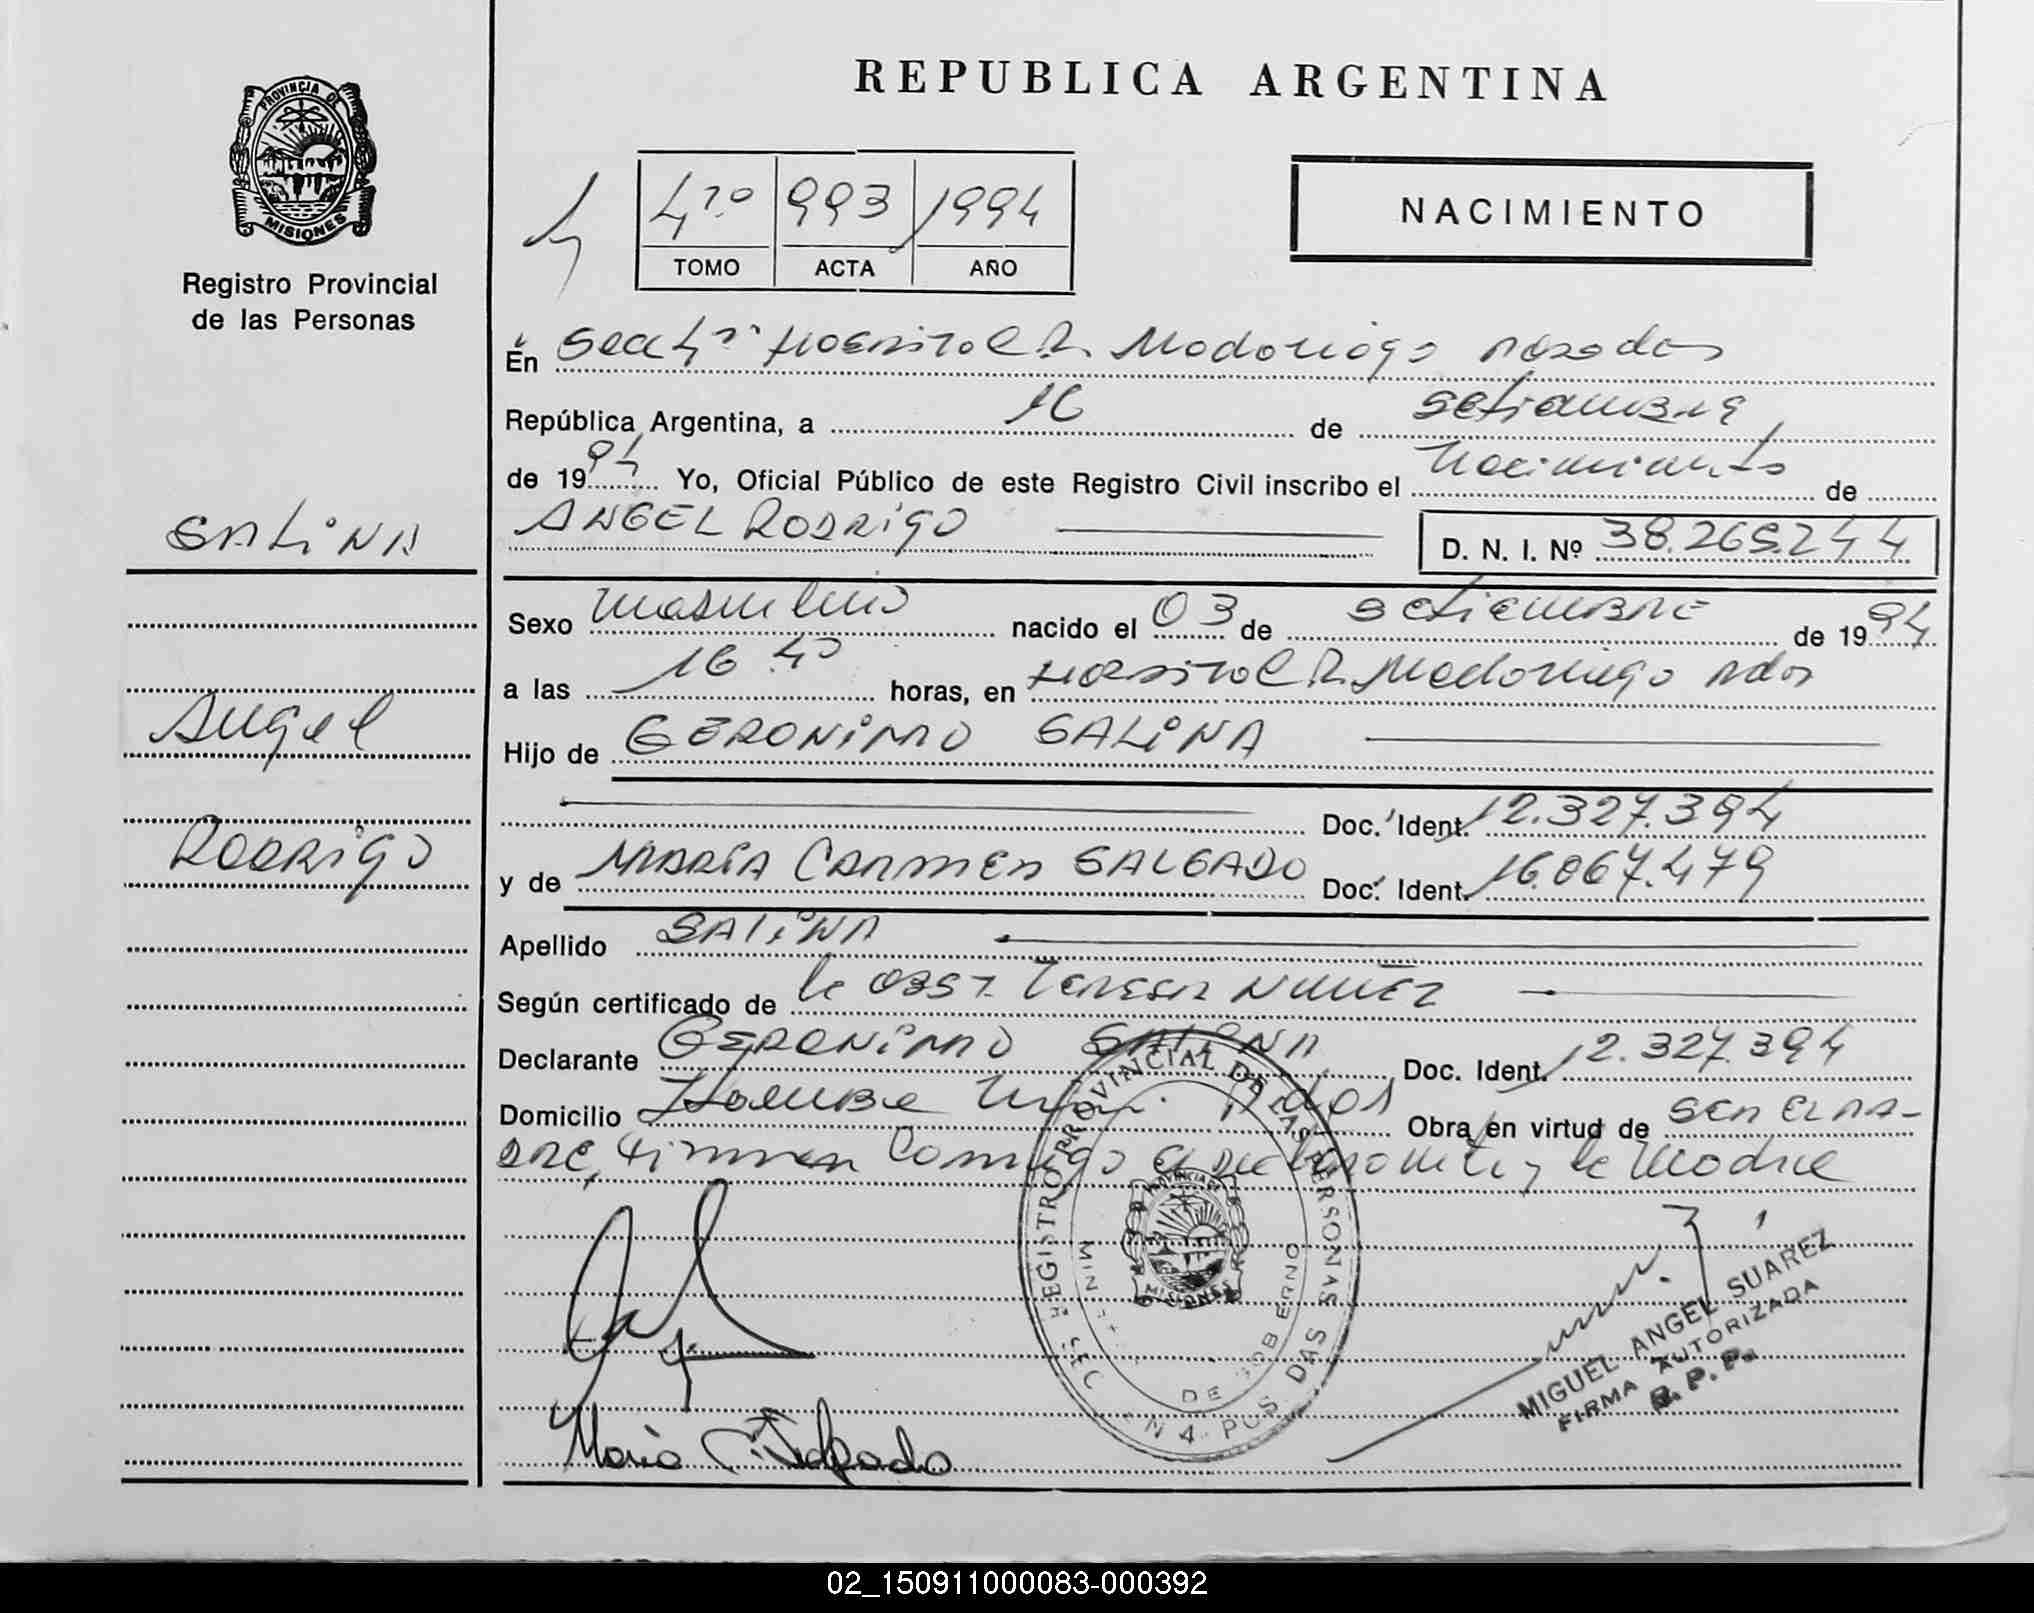 REPUBLICA ARGENTINA
PROVINCIA DE
MISIONES
Registro Provincial
de las Personas
4to 993 1994
TOMO ACTA AÑO
NACIMIENTO
En Secc 4ta Hospital R. Madariaga Posadas
República Argentina, a 16 de setiembre
de 1994 Yo, Oficial Público de este Registro Civil inscribo el Nacimiento de
ANGEL RODRIGO D. N. I. Nº 38.265.244
SALINA
Sexo Masculino nacido el 03 de setiembre de 1994
a las 16 40 horas, en Hospital R. Madariaga Pdas
Angel
Hijo de GERONIMO SALINA
Doc. Ident. 12.327.394
Rodrigo
y de MARÍA CARMEN SALGADO Doc. Ident. 16.067.479
Apellido SALINA
Según certificado de la OBST. Teresa NUÑEZ
Declarante GERONIMO SALINA Doc. Ident. 12.327.394
Domicilio Pdas Obra en virtud de ser el PA-
DRE, firman conmigo el declarante y la Madre
REGISTRO PROVINCIAL DE LAS PERSONAS
PROVINCIA DE
MISIONES
DE GOBIERNO
SEC N 4 POSADAS
MIGUEL ANGEL SUAREZ
FIRMA AUTORIZADA
R. P. P.
Maria C Salgado
02_150911000083-000392